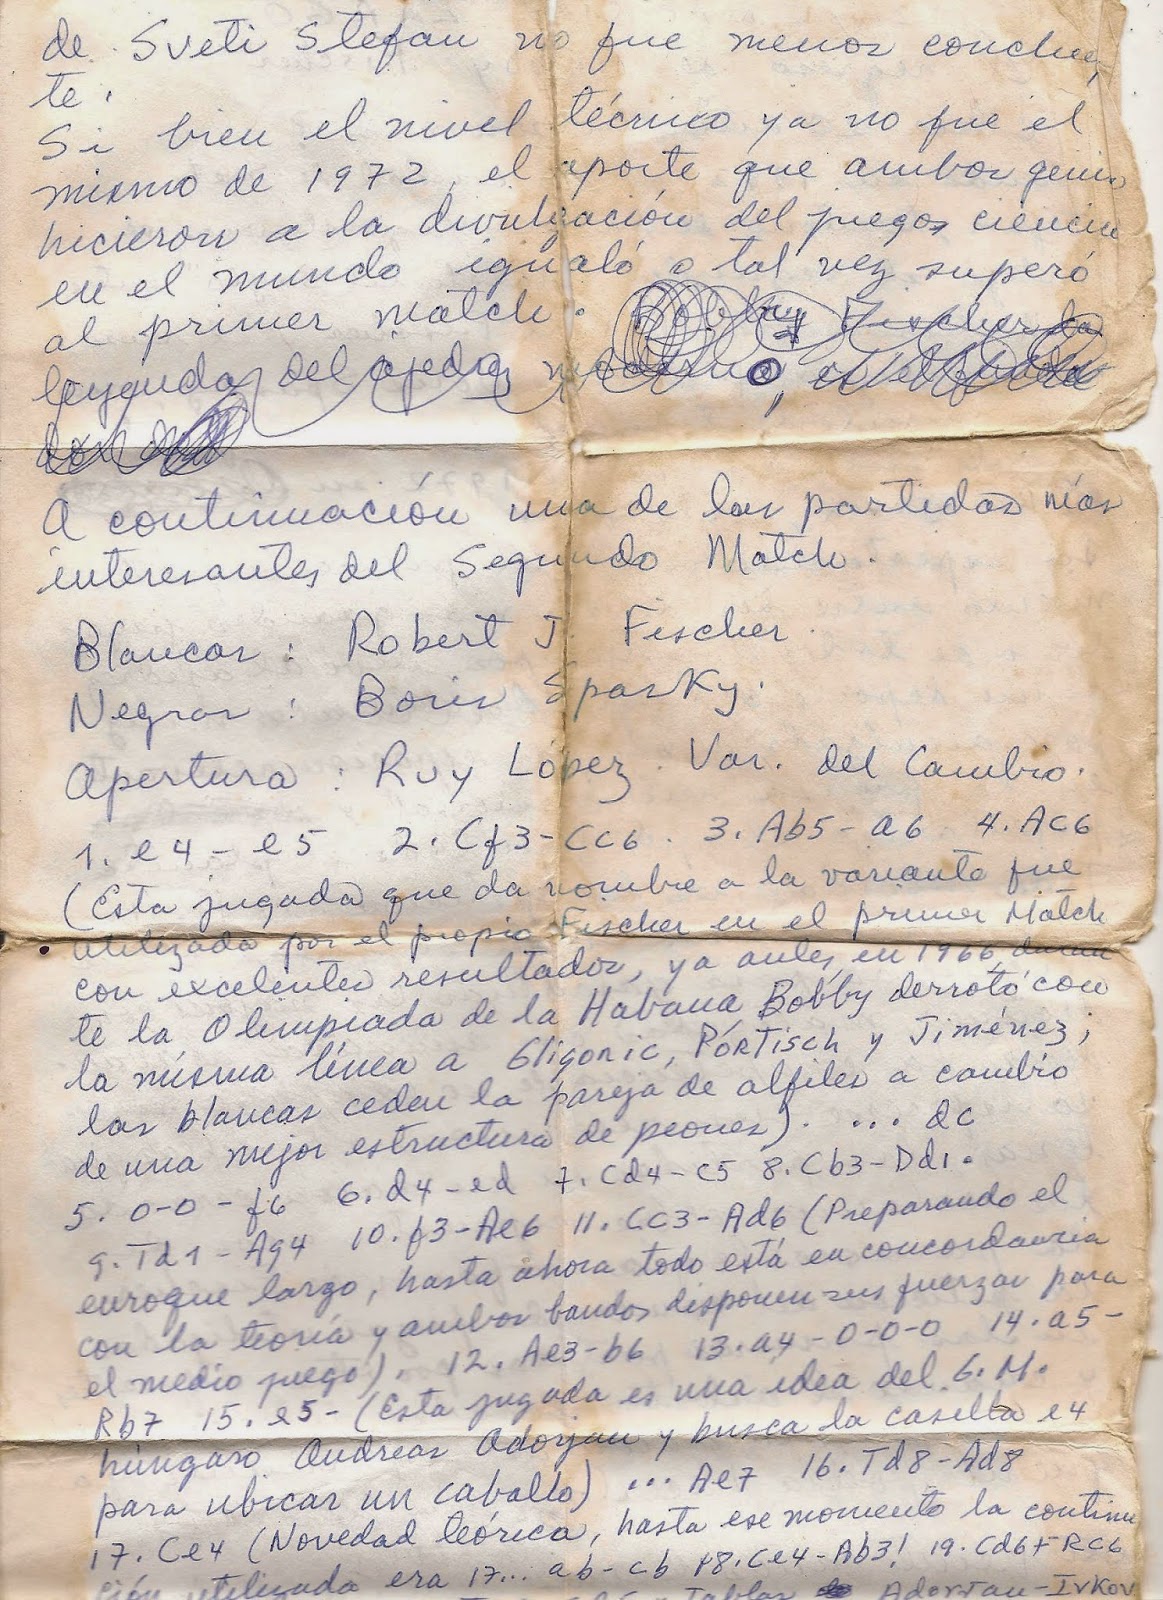 de Sveti Stefan no fue menos concluyen
te.
Si bien el nivel técnico ya no fue el
mismo de 1972, el aporte que ambos genios
hicieron a la divulgación del juegos ciencia
en el mundo igualó o tal vez superó
al primer match. Bobby Fischer la
leyenda del ajedrez moderno,
A continuación una de las partidas más
interesantes del Segundo Match.
Blancas: Robert J. Fischer.
Negras: Boris Spasky.
Apertura: Ruy López. Var. del Cambio.
1. e4 - e5 2. Cf3-Cc6. 3. Ab5-a6 4. Ac6
(Esta jugada que da nombre a la variante fue
utilizada por el propio Fischer en el primer Match
con excelentes resultados, ya antes en 1966 duran
te la Olimpiada de la Habana Bobby derrotó con
la misma línea a Gligoric, Pórtisch y Jiménez;
las blancas ceden la pareja de alfiles a cambio
de una mejor estructura de peones). ... dc
5. 0-0-f6 6. d4-ed 7. Cd4-c5 8. Cb3-Dd1.
9. Td1-Ag4 10. f3-Ae6 11. Cc3-Ad6 (Preparando el
enroque largo, hasta ahora todo está en concordancia
con la teoría y ambos bandos disponen sus fuerzas para
el medio juego). 12. Ae3-b6 13. a4-0-0-0 14. a5-
Rb7 15. e5- (Esta jugada es una idea del G.M.
húngaro Andreas Adorjan y busca la casilla e4
para ubicar un caballo) ... Ae7 16. Td8-Ad8
17. Ce4 (Novedad teórica, hasta ese momento la continua
ción utilizada era 17... ab-cb 18. Ce4-Ab3! 19. Cd6+Rc6
Tablas Adorjan-Ivkov